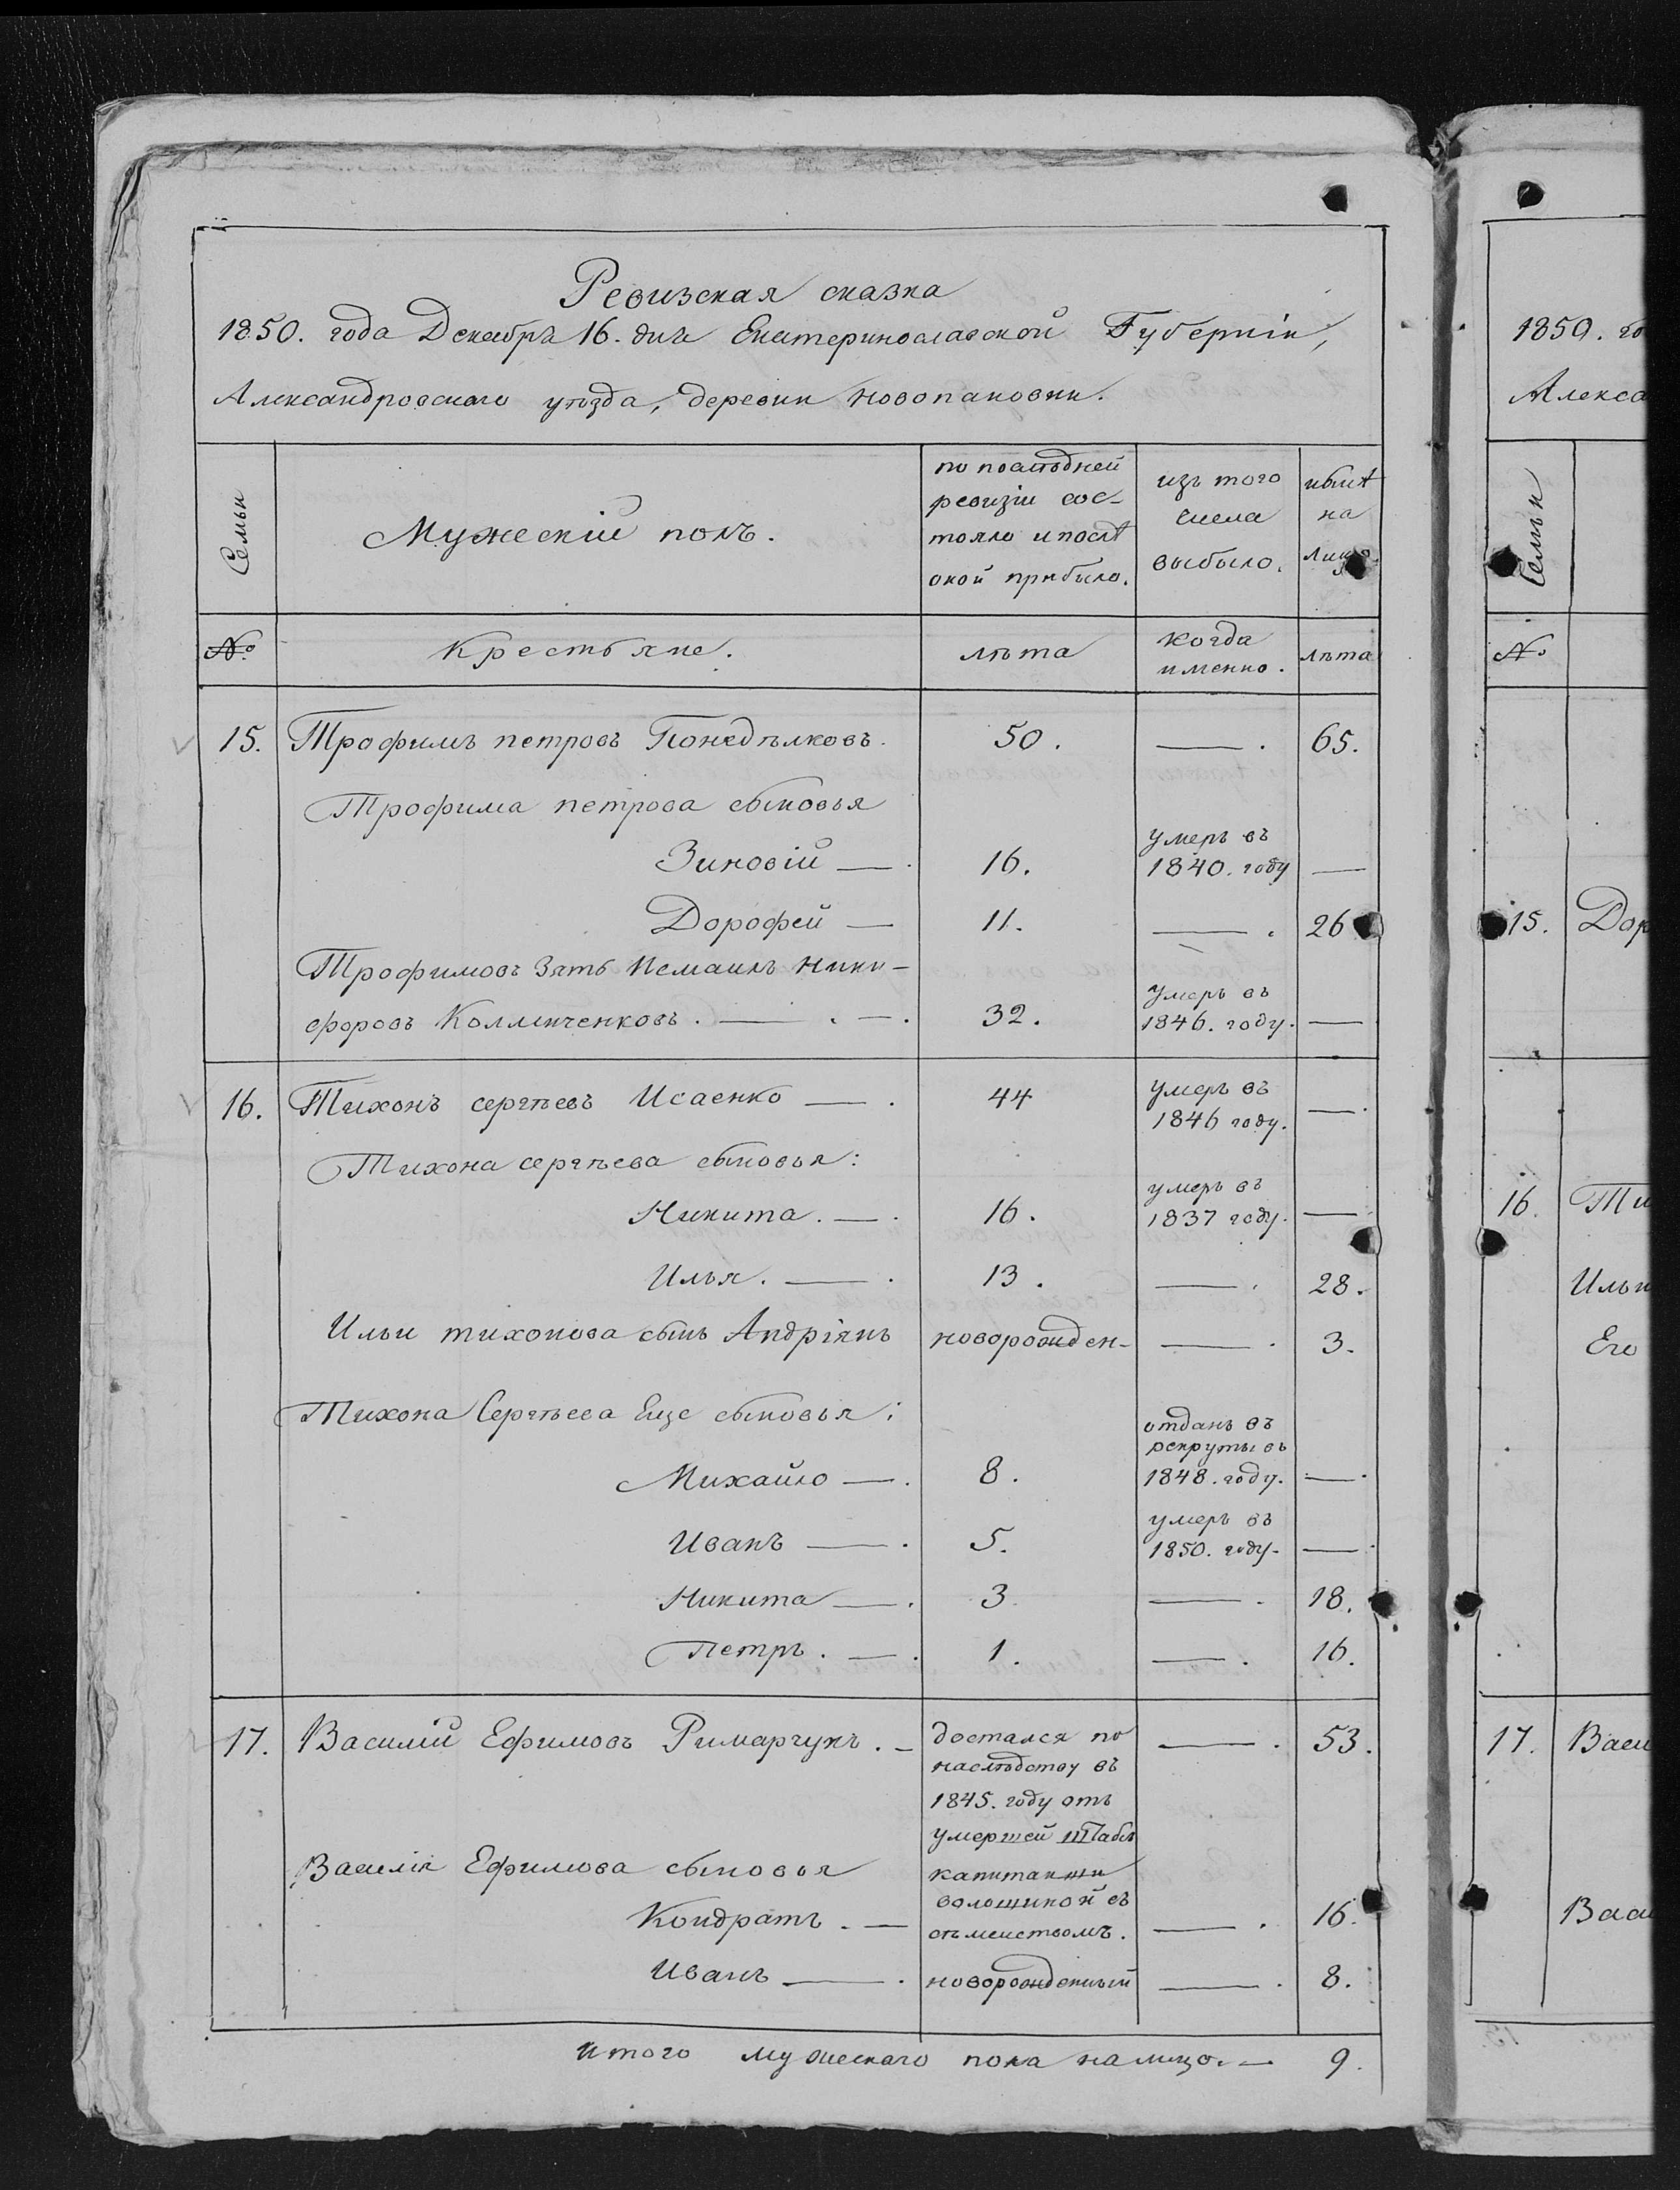 Ревизская сказка
1850. года Декабря 16. дня Екатеринославской Губерніи,
Александровского уѣзда, деревни новопановки.
Семьи
Мужескій полъ.
по послѣдней
ревизіи сос-
тояло и послѣ
оной прибыло.
изъ того
числа
выбыло.
нынѣ
на
лицо.
№
Крестьяне.
лѣта
когда
именно.
лѣта
15. Трофимъ петровъ Понедѣлковъ. 50. — . 65.
Трофима петрова сыновья
Зиновій — . 16. умеръ въ
1840. году —
Дорофей — 11. — . 26
Трофимовъ Зять Исмаилъ Ники-
форовъ . — . — . 32. умеръ въ
1846. году. —
16. Тихонъ сергѣевъ Исаенко — . 44 умеръ въ
1846 году. — .
Тихона сергѣева сыновья:
Никита. — . 16. умеръ въ
1837 году. —
Илья. — . 13. — . 28.
Ильи тихонова сынъ Андріянъ новорожден- — . 3.
Тихона Сергѣева Еще сыновья:
Михайло — . 8. отданъ въ
рекруты въ
1848. году. — .
Иванъ — . 5. умеръ въ
1850. году. — .
Никита — . 3 — . 18.
Петръ. — . 1. — . 16.
17. Василій Ефимовъ Римарчукъ. — достался по
наслѣдству въ
1845. году отъ
умершей Штабсъ
капитанши
волошиной съ
сѣмействомъ. — . 53.
Василія Ефимова сыновья
Кондратъ. — — . 16.
Иванъ — . новорожденный — . 8.
итого мужескаго пола налицо. — 9.
1850. го
Алекса
Семьи
№
15. Дор
16. Ти
Ильи
Его
17. Васи
Васи